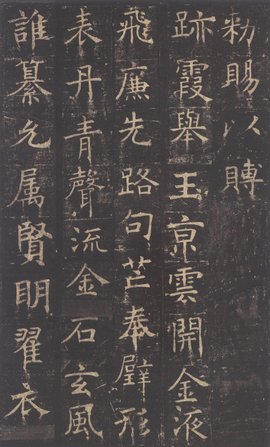 勑賜以賻
跡霞舉王京雲開金液
飛廉先路句芒奉璧形
表丹青聲流金石玄風
誰纂允属賢明翟衣